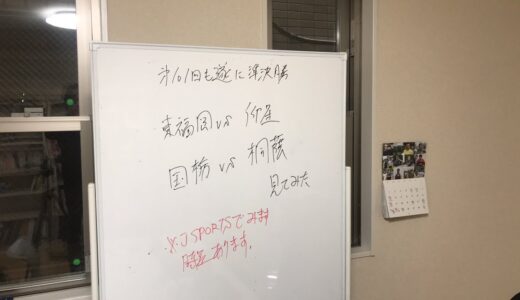 才101回も遂に準決勝
東福岡 vs 仰星
国栃 vs 桐蔭
見てみた
※J SPORTSでみます
あります。